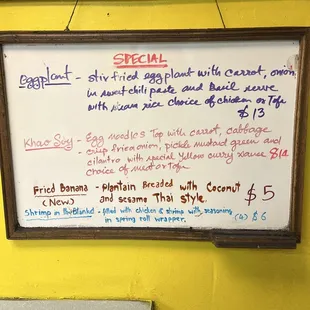 SPECIAL
Eggplant - stir fried eggplant with carrot, onion
in sweet chili paste and Basil serve
with steam rice choice of chicken or Tofu
$13
Khao Soy - Egg noodles Top with carrot, cabbage
- crisp fried onion, pickle mustard green and
cilantro with special Yellow curry sauce $14
choice of meat or Tofu
Fried Banana - Plantain Breaded with Coconut $5
(New) and sesame Thai Style.
Shrimp in - filled with chicken & shrimp with seasoning
in spring roll wrapper. (4) $6